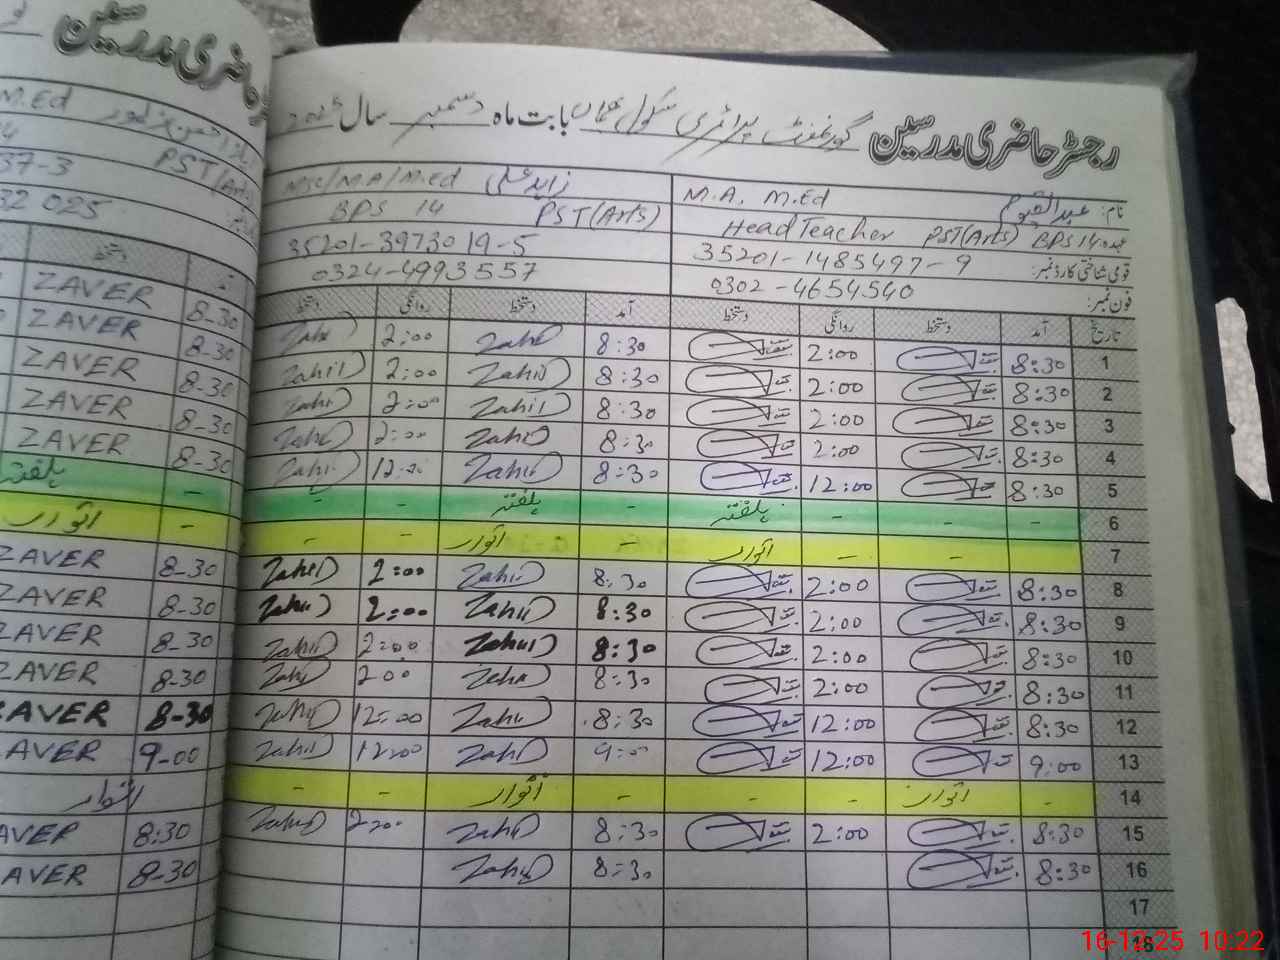 حاضری مدرسین
M.Ed
PST(Arts)
37-3
32 025
دستخط آمد
ZAVER 8-30
ZAVER 8-30
ZAVER 8-30
ZAVER 8-30
ZAVER 8-30
ہفتہ -
اتوار -
ZAVER 8-30
ZAVER 8-30
ZAVER 8-30
ZAVER 8-30
ZAVER 8-30
AVER 9-00
اتوار
AVER 8:30
AVER 8-30
رجسٹر حاضری مدرسین گورنمنٹ پرائمری سکول بابت ماہ دسمبر سال
نام: عبدالقیوم M.A. M.Ed
زاہد علی MSc/M.A/M.Ed
عہدہ: Head Teacher PST(Arts) BPS 14
PST(Arts) BPS 14
قومی شناختی کارڈ نمبر: 35201-1485497-9
35201-3973019-5
فون نمبر: 0302-4654540
0324-4993557
تاریخ آمد دستخط روانگی دستخط آمد دستخط روانگی دستخط
1 8:30 2:00 8:30 Zahid 2:00 Zahid
2 8:30 2:00 8:30 Zahid 2:00 Zahid
3 8:30 2:00 8:30 Zahid 2:00 Zahid
4 8:30 2:00 8:30 Zahid 2:00 Zahid
5 8:30 12:00 8:30 Zahid 12:00 Zahid
6 - - - ہفتہ - ہفتہ - -
7 - - - اتوار - اتوار - -
8 8:30 2:00 8:30 Zahid 2:00 Zahid
9 8:30 2:00 8:30 Zahid 2:00 Zahid
10 8:30 2:00 8:30 Zahid 2:00 Zahid
11 8:30 2:00 8:30 Zahid 2:00 Zahid
12 8:30 12:00 8:30 Zahid 12:00 Zahid
13 9:00 12:00 9:00 Zahid 12:00 Zahid
14 - اتوار - - - اتوار - -
15 8:30 2:00 8:30 Zahid 2:00 Zahid
16 8:30 8:30 Zahid
17
18
16-12-25 10:22